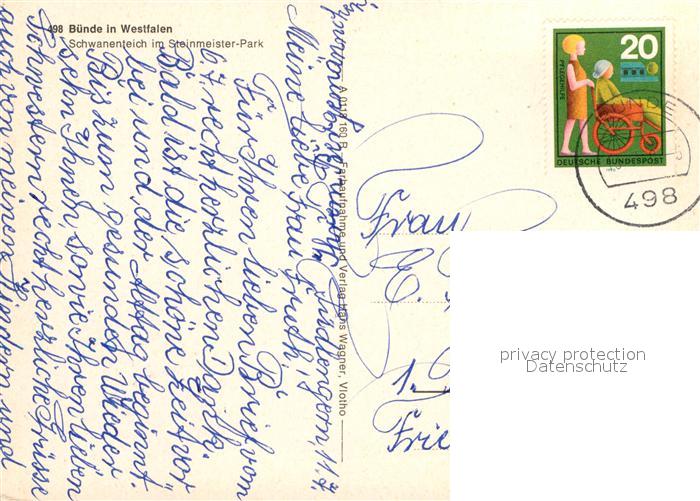 498 Bünde in Westfalen
Schwanenteich im Steinmeister-Park
Südlengern, 11.7.
Meine liebe Frau
Für Ihren lieben Brief vom
6.7. recht herzlichen Dank.
Bald ist die schöne Zeit vor
bei und der Alltag beginnt.
Bis zum gesunden Wieder
sehn Ihnen, sowie Ihren lieben
Schwestern recht herzliche Grüsse
auch von meinen Kindern und
A 0118 160 R Farbaufnahme und Verlag Hans Wagner, Vlotho
20
PFLEGEHILFE
DEUTSCHE BUNDESPOST
498
Frau
E.
1
Frie
privacy protection
Datenschutz